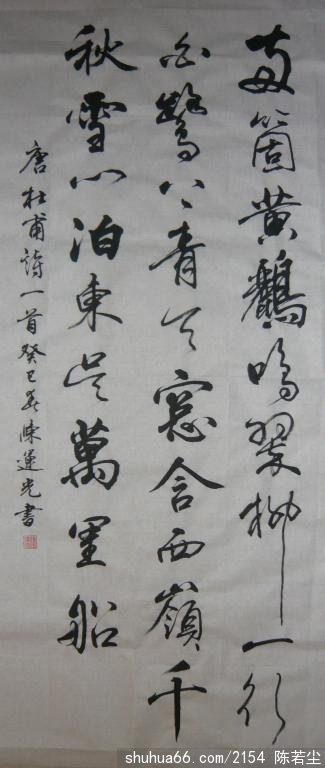 兩箇黃鸝鳴翠柳一行
白鷺上青天窗含西嶺千
秋雪門泊東吳萬里船
唐杜甫詩一首癸巳陳光書
shuhua66.com/2154 陈若尘